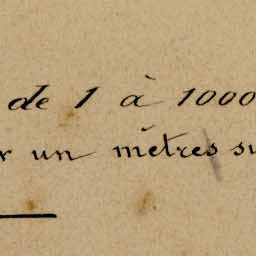 de 1 à 1000
r un mètres su